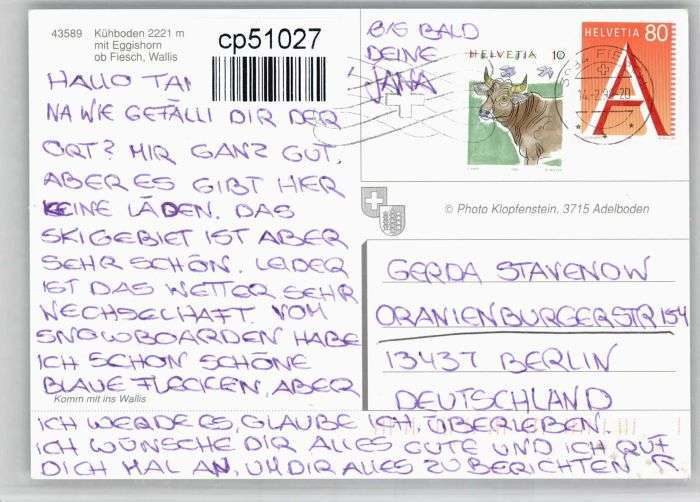 43589 Kühboden 2221 m
mit Eggishorn
ob Fiesch, Wallis
cp51027
HALLO
NA WIE GEFÄLLT DIR DER
ORT? MIR GANZ GUT.
ABER ES GIBT HIER
KEINE LÄDEN. DAS
SKIGEBIET IST ABER
SEHR SCHÖN. LEIDER
IST DAS WETTER SEHR
WECHSELHAFT. VOM
SNOWBOARDEN HABE
ICH SCHON SCHÖNE
BLAUE FLECKEN, ABER
Komm mit ins Wallis
ICH WERDE ES, GLAUBE ICH, ÜBERLEBEN.
ICH WÜNSCHE DIR ALLES GUTE UND ICH RUF
DICH MAL AN, UM DIR ALLES ZU BERICHTEN
BIS BALD
DEINE
JANA
HELVETIA 10
HELVETIA 80
A
© Photo Klopfenstein, 3715 Adelboden
GERDA STAVENOW
ORANIENBURGERSTR 154
13437 BERLIN
DEUTSCHLAND